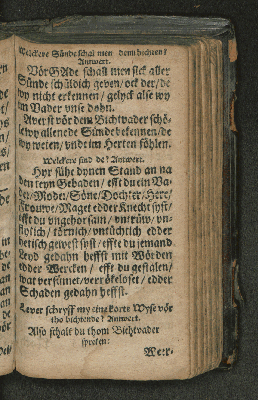 Welckere Sünde schal men denn bichten?
Antwert.
Vör GAde schall men sick aller
Sünde schüldich geven / ock der / de
wy nicht erkennen / gelyck alse wy
im Vader vnse dohn.
Averst vör dem Bichtvader schö-
le wy allene de Sünde bekennen / de
wy weten / vnd im Herten föhlen.
Welckere sind de? Antwert.
Hyr sühe dynen Stand an na
den teyn Gebaden / efft du ein Va-
der / Moder / Söne / Dochter / Here /
Frouwe / Maget edder Knecht syst /
efft du vngehorsam / vntrüw / vn-
flytich / törnich / vntüchtich edder
hetisch gewest syst / effte du jemand
Leyd gedahn heffst mit Wörden
edder Wercken / efft du gestalen /
wat versümet / verrökeloset / edder
Schaden gedahn heffst.
Lever schryff my eine korte Wyse vör
tho bichtende? Antwert.
Also schalt du thom Bichtvader
spreken:
Wer-